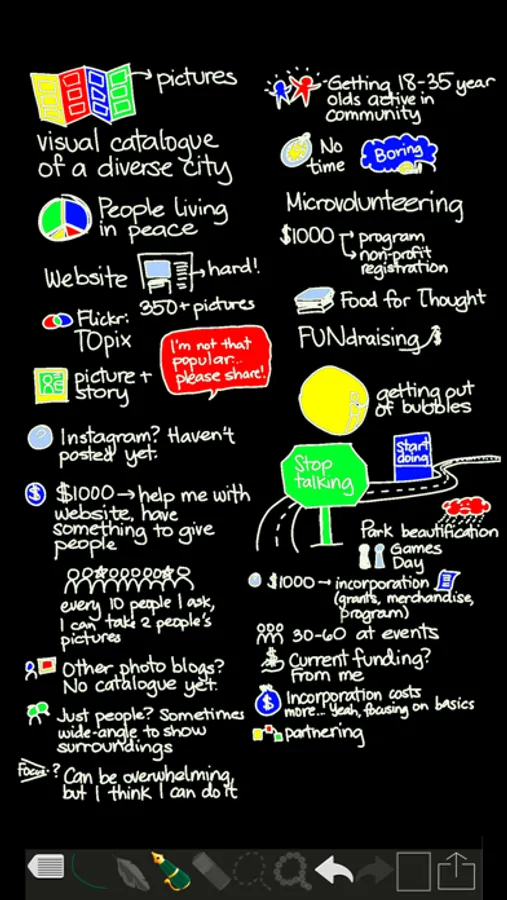 pictures
visual catalogue
of a diverse city
People living
in peace
Website
hard!
350+ pictures
Flickr:
TOpix
I'm not that
popular...
please share!
picture +
story
Instagram? Haven't
posted yet.
$ $1000 → help me with
website, have
something to give
people
every 10 people I ask,
I can take 2 people's
pictures
Other photo blogs?
No catalogue yet.
Just people? Sometimes
wide-angle to show
surroundings
Focus? Can be overwhelming,
but I think I can do it
Getting 18-35 year
olds active in
community
No
time
Boring
Microvolunteering
$1000 → program
→ non-profit
registration
Food for Thought
FUNdraising $
getting out
of bubbles
Stop
talking
start
doing
Park beautification
Games
Day
$1000 → incorporation
(grants, merchandise,
program)
30-60 at events
$ Current funding?
From me
$ Incorporation costs
more... yeah, focusing on basics
partnering